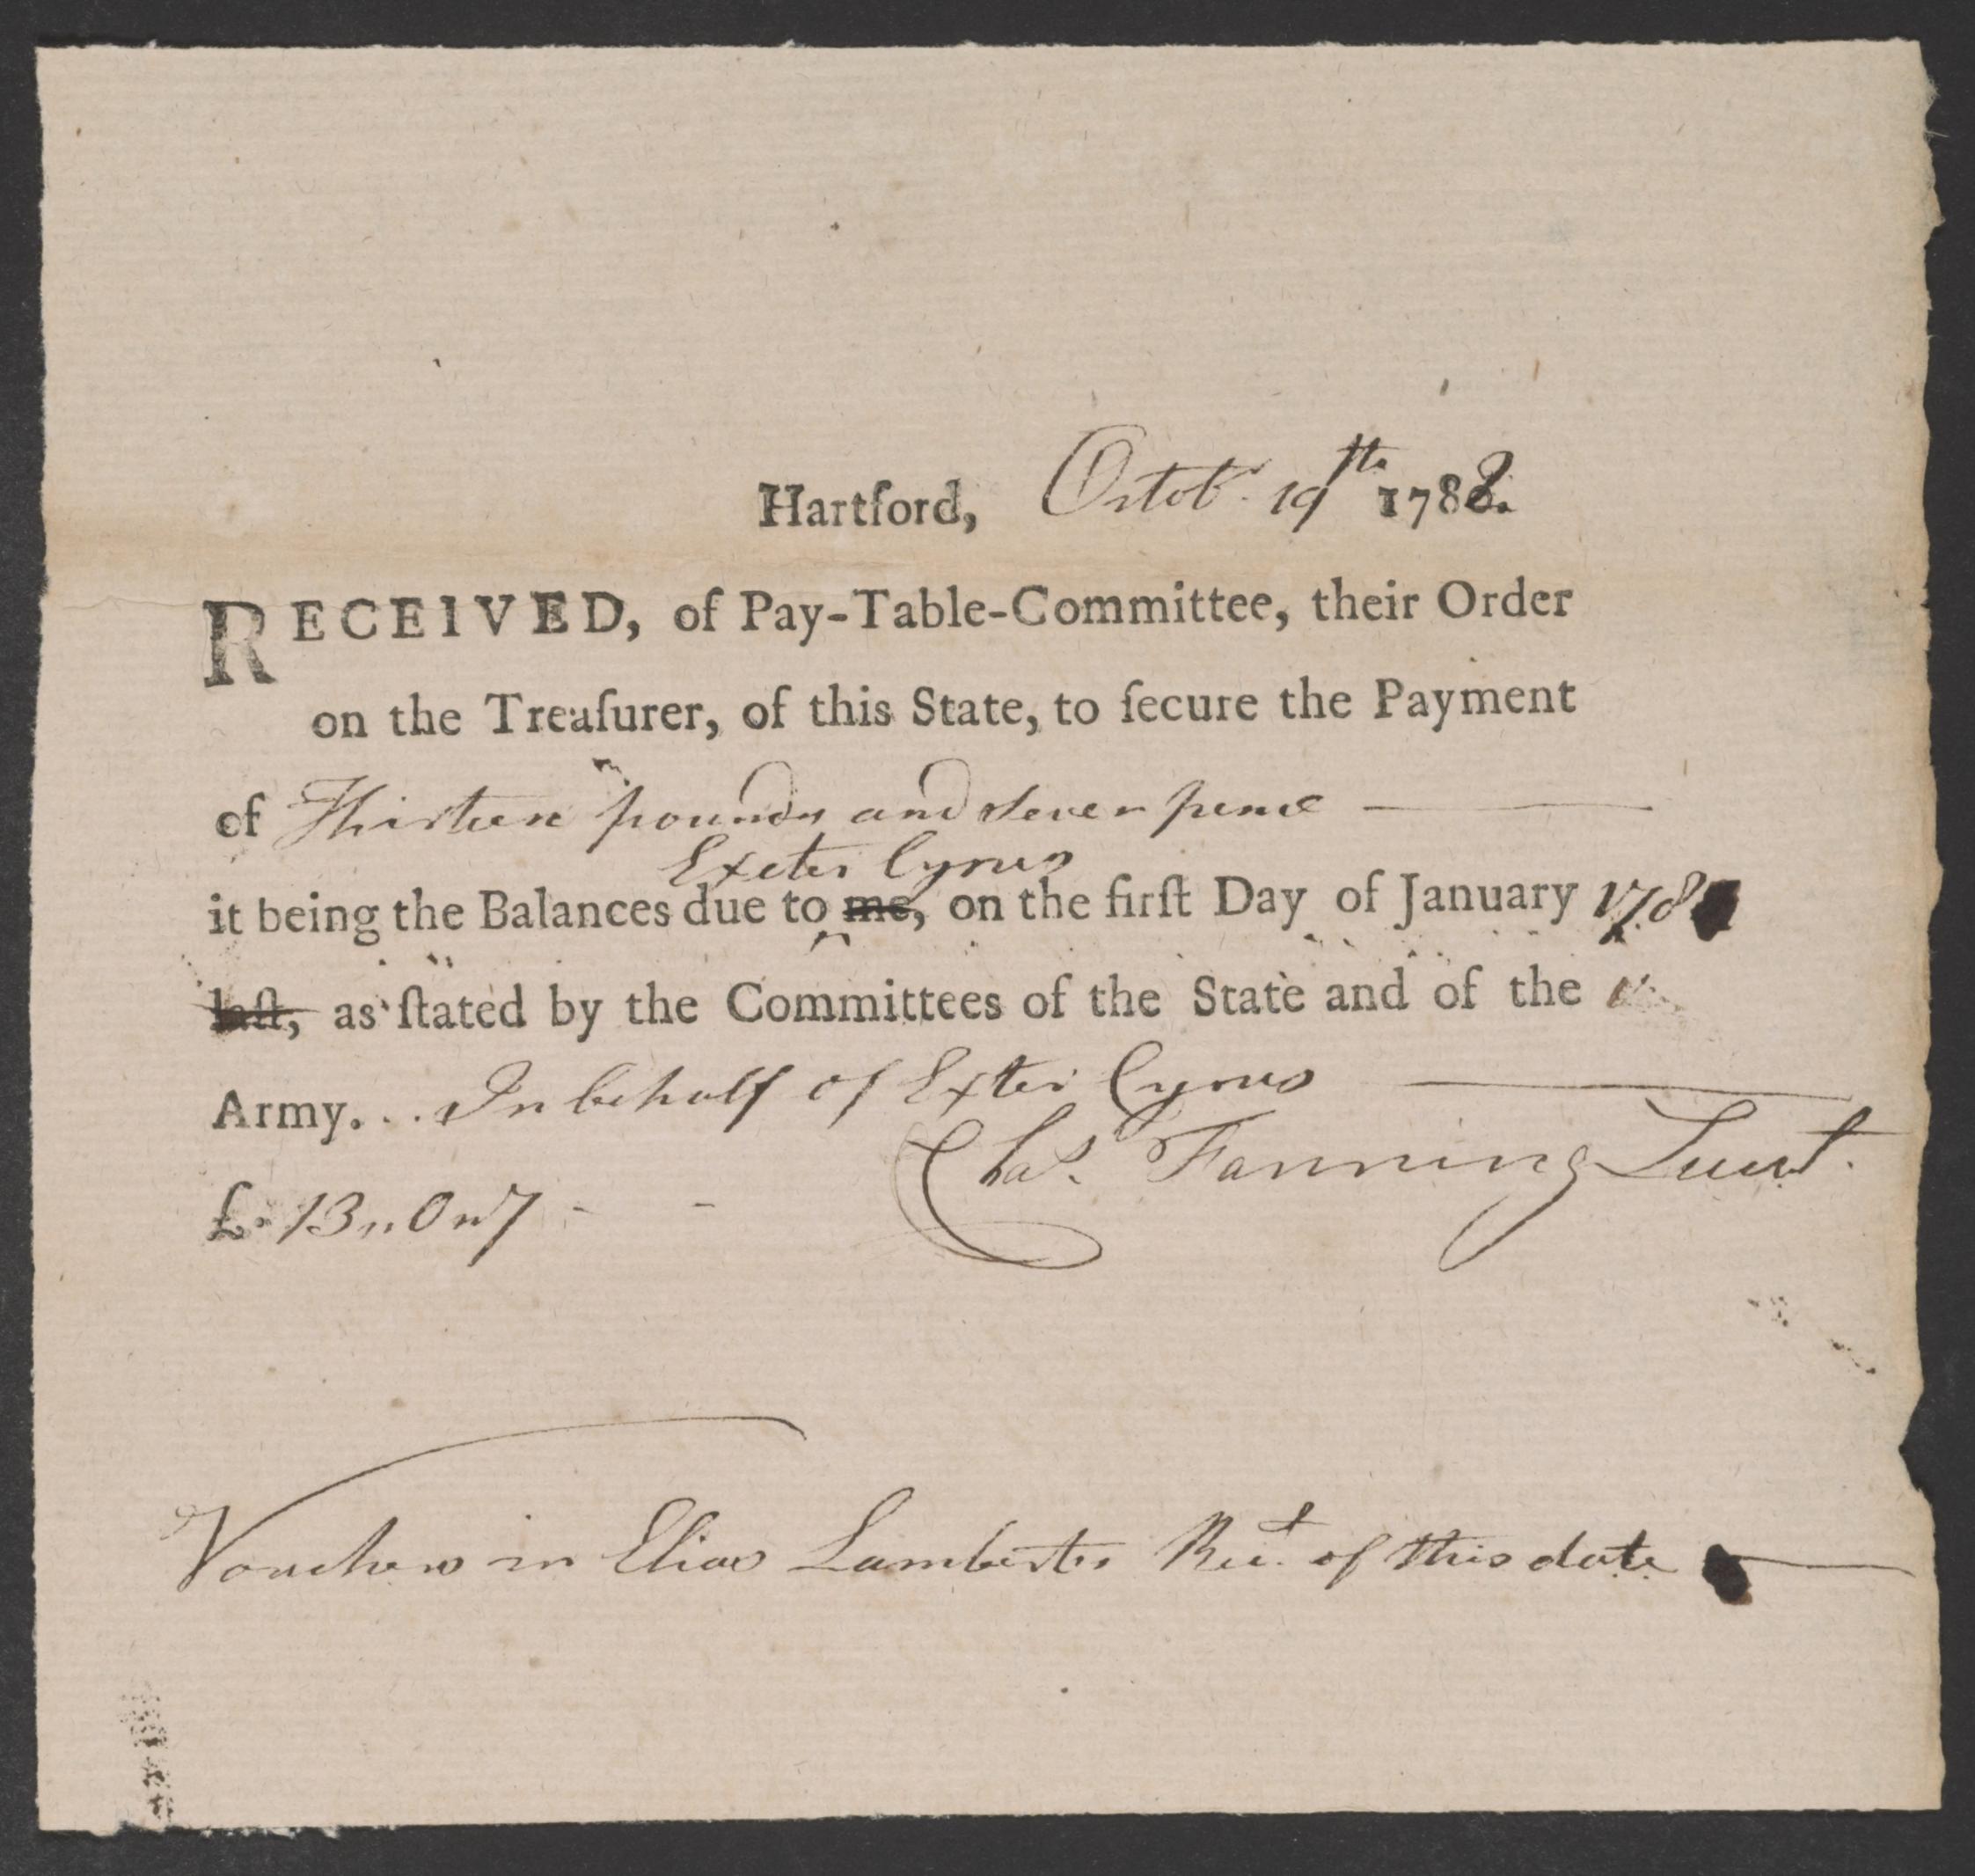 Hartford, Octobr. 19th 1782.
RECEIVED, of Pay-Table-Committee, their Order
on the Treaſurer, of this State, to ſecure the Payment
of Thirteen pounds and Seven pence
Exeter Cyrus
it being the Balances due to me, on the firſt Day of January 178
laſt, as ſtated by the Committees of the State and of the
Army... In behalf of Exter Cyrus
Chas. Fanning Lieut.
£. 13,,0,,7 - -
Vouchers in Elias Lamberts Rect. of this date